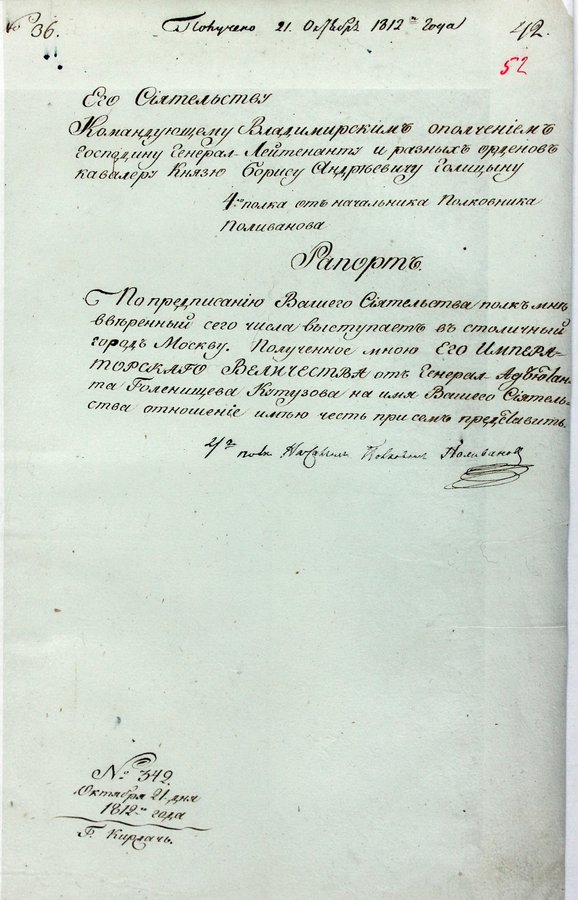 № 36.
Получено 21. Октября 1812го года
42.
52
Его Сіятельству
Командующему Владимирскимъ ополченіемъ
Господину Генерал-Лейтенанту и разныхъ орденовъ
кавалеру Князю Борису Андрѣевичу Голицыну
4го полка отъ начальника Полковника
Поливанова
Рапортъ.
По предписанію Вашего Сіятельства полкъ мнѣ
ввѣренный сего числа выступаетъ въ столичный
городъ Москву. Полученное мною Его Импера-
торскаго Величества отъ Генерал-Адъютан-
та Голенищева Кутузова на имя Вашего Сіятель-
ства отношеніе имѣю честь при семъ представить.
4го полк Начальник Полковник Поливанов
№ 342.
Октября 21. дня
1812го года
Г. Киржачь.